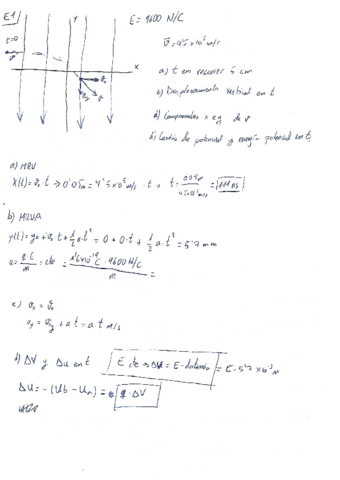 E1)
E = 9600 N/C
y
t=0
v = 4'5 x 10⁵ m/s
x
a) t en recorrer 5 cm
b) Desplazamiento vertical en t
c) Componentes x e y de v
d) Cambio de potencial y energía potencial en t
a) MRU
x(t) = v₀ · t → 0'05m = 4'5 x 10⁵ m/s · t → t = 0'05m / 4'5x10⁵ m/s = 111 ns
b) MRUA
y(t) = y₀ + v₀ t + 1/2 a · t² = 0 + 0 · t + 1/2 a · t² = 5'7 mm
a = q · E / m = cte = 1'6x10⁻¹⁹ C · 9600 N/C / m =
c) vₓ = v₀
v_y = v₀y + a t = a · t m/s
d) ΔV y Δu en t
E cte → ΔV = E · distancia = E · 5'7 x 10⁻³ m
Δu = - (Ub - Ua) = q · ΔV